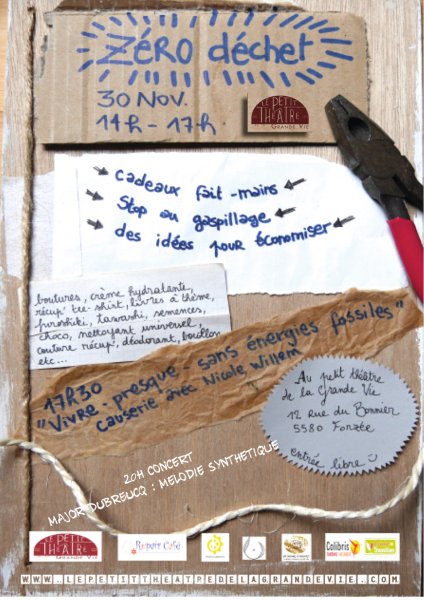 zéro déchet
30 Nov.
14h - 17h
LE PETIT
THÉÂTRE
GRANDE VIE
Cadeaux fait-mains
Stop au gaspillage
des idées pour économiser
boutures, crème hydratante,
récup' tee-shirt, livres à thème,
furoshiki, tawashi, semences,
choco, nettoyant universel,
couture récup', déodorant, bouillon
etc...
17H30
"Vivre - presque - sans énergies fossiles"
Causerie avec Nicole Willem
Au petit théâtre
de la Grande Vie
12 Rue du Bonnier
5580 Forzée
entrée libre
20H CONCERT
MAJOR DUBREUCQ : MELODIE SYNTHETIQUE
LE PETIT
THÉÂTRE
GRANDE VIE
Repair Café
Colibris
WWW.LEPETITTHEATREDELAGRANDEVIE.COM